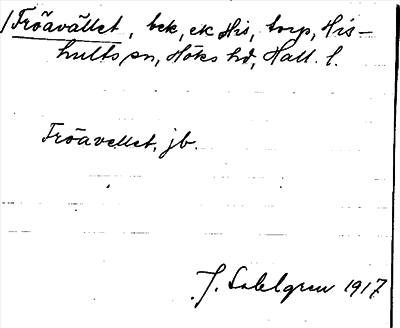 Fröavället, bek, ek His, torp, His-
hults sn, Höks hd, Hall. l.
Fröavellet, jb.
J. Sahlgren 1917